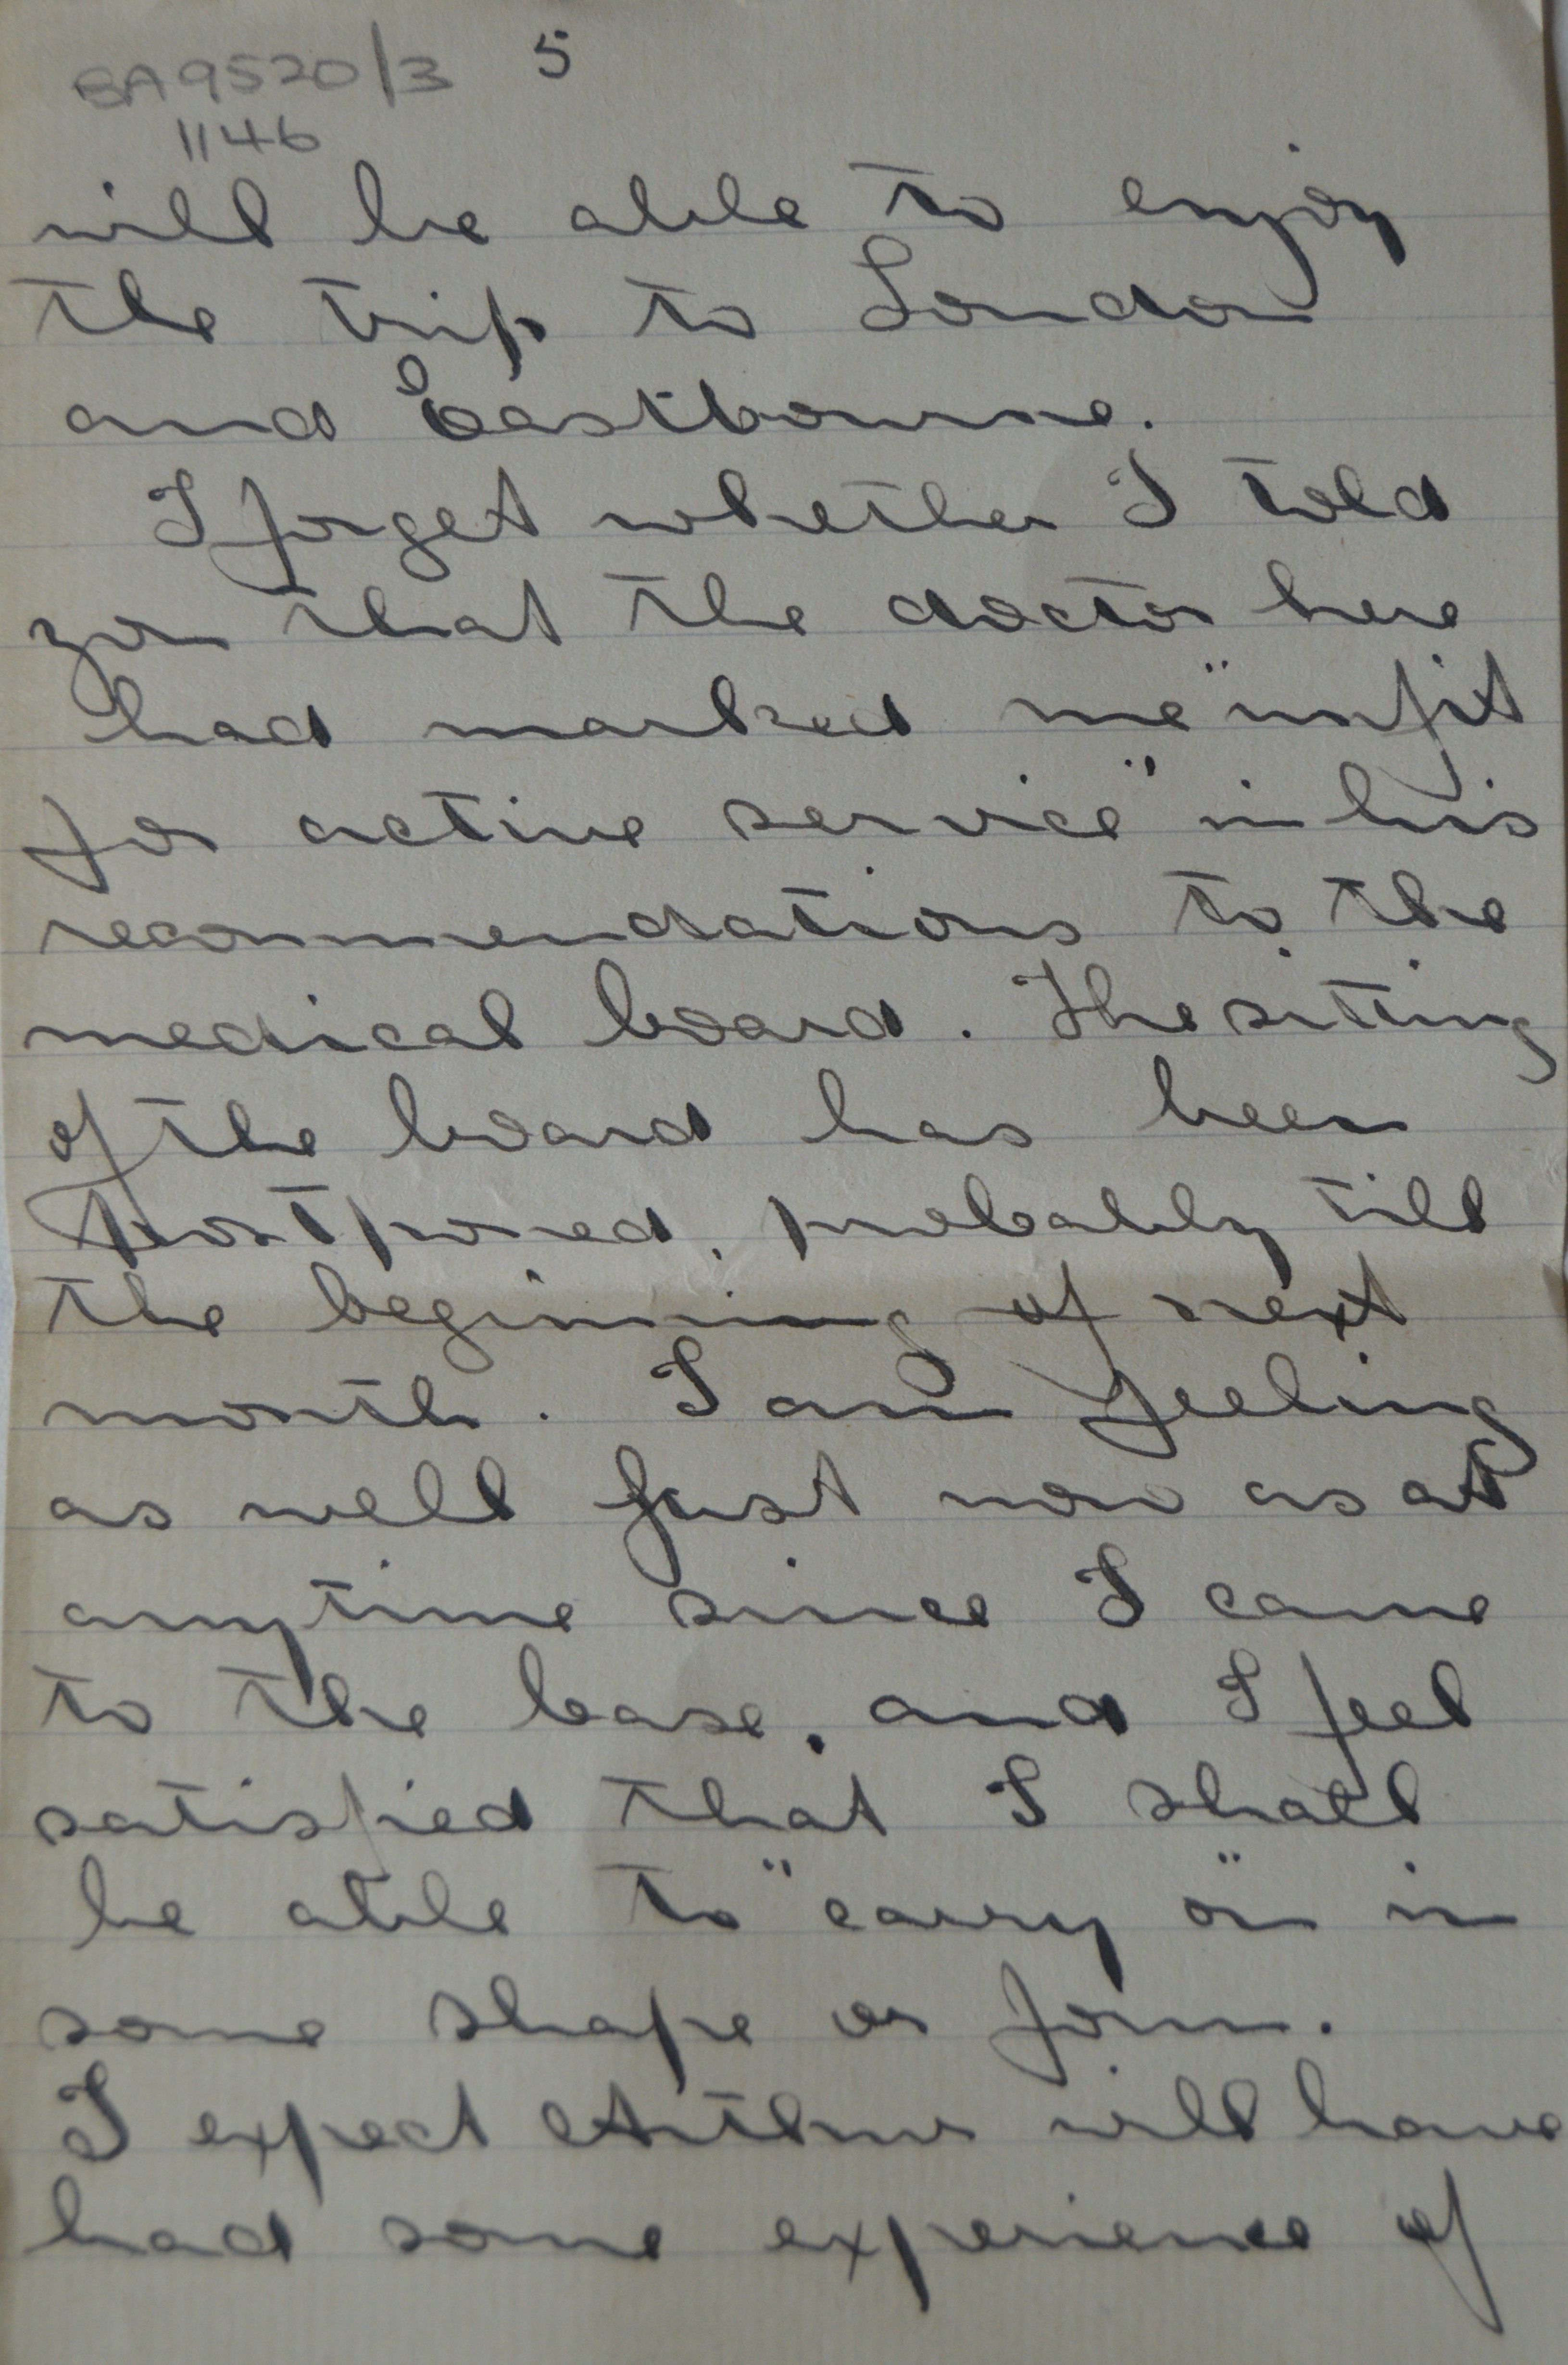 BA9520/3 5
1146
will be able to enjoy
the trip to London
and Eastbourne.
I forget whether I told
you that the doctor here
had marked me "unfit
for active service" in his
recommendations to the
medical board. The sitting
of the board has been
postponed, probably till
the beginning of next
month. I am feeling
as well just now as at
anytime since I came
to the base, and I feel
satisfied that I shall
be able to "carry on" in
some shape or form.
I expect Arthur will have
had some experience of